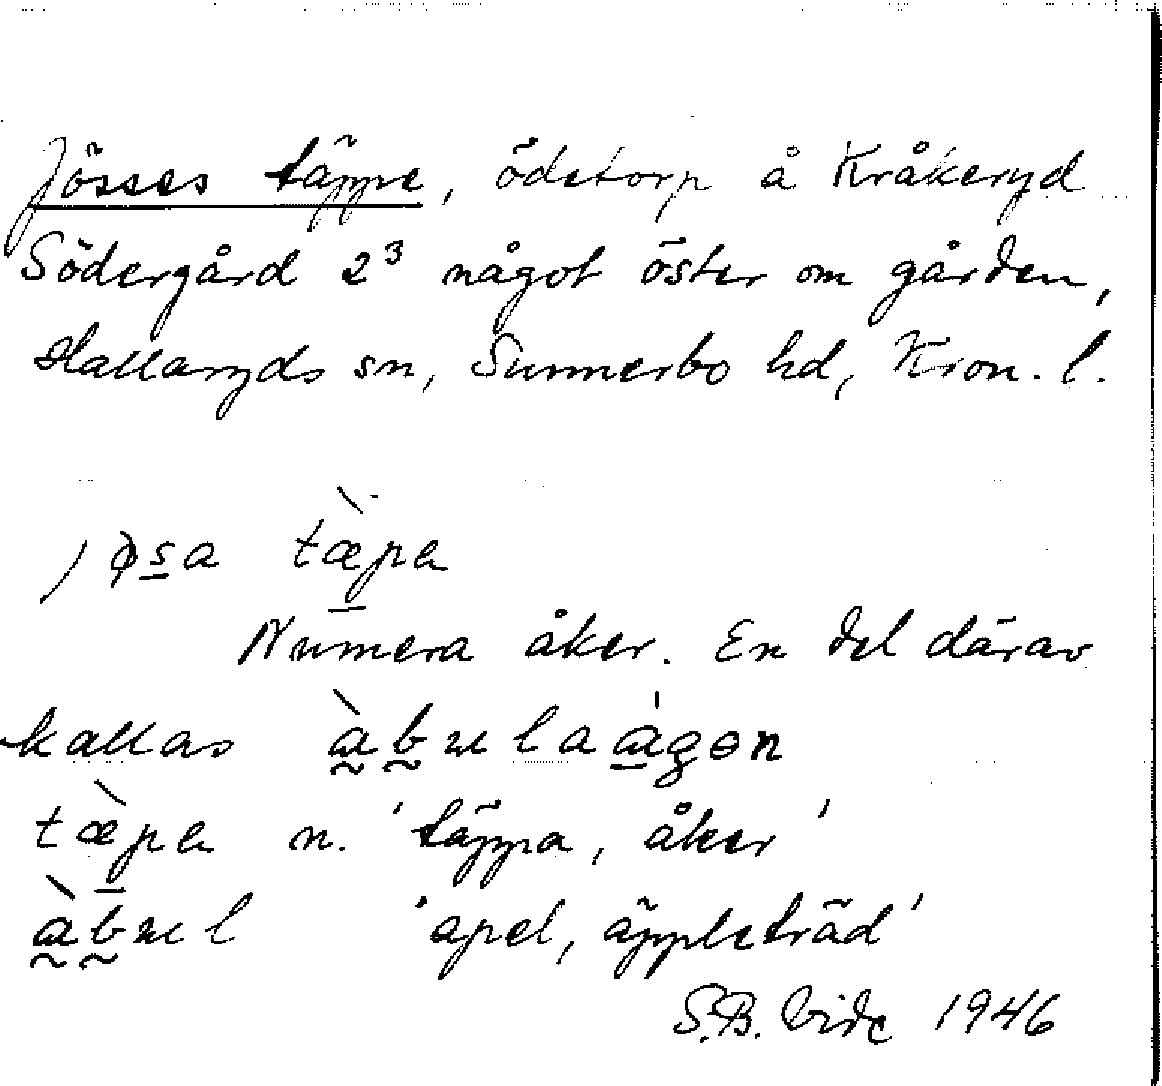 Jösses täppe, ödetorp å Kråkeryd
Södergård 2³ något öster om gården,
Hallaryds sn, Sunnerbo hd, Kron. l.
jøsa tæ̀pa
Numera åker. En del därav
kallas àbulaágən
tæ̀pa n. 'täppa, åker'
àbul 'apel, äppleträd'
S.B. Vide 1946